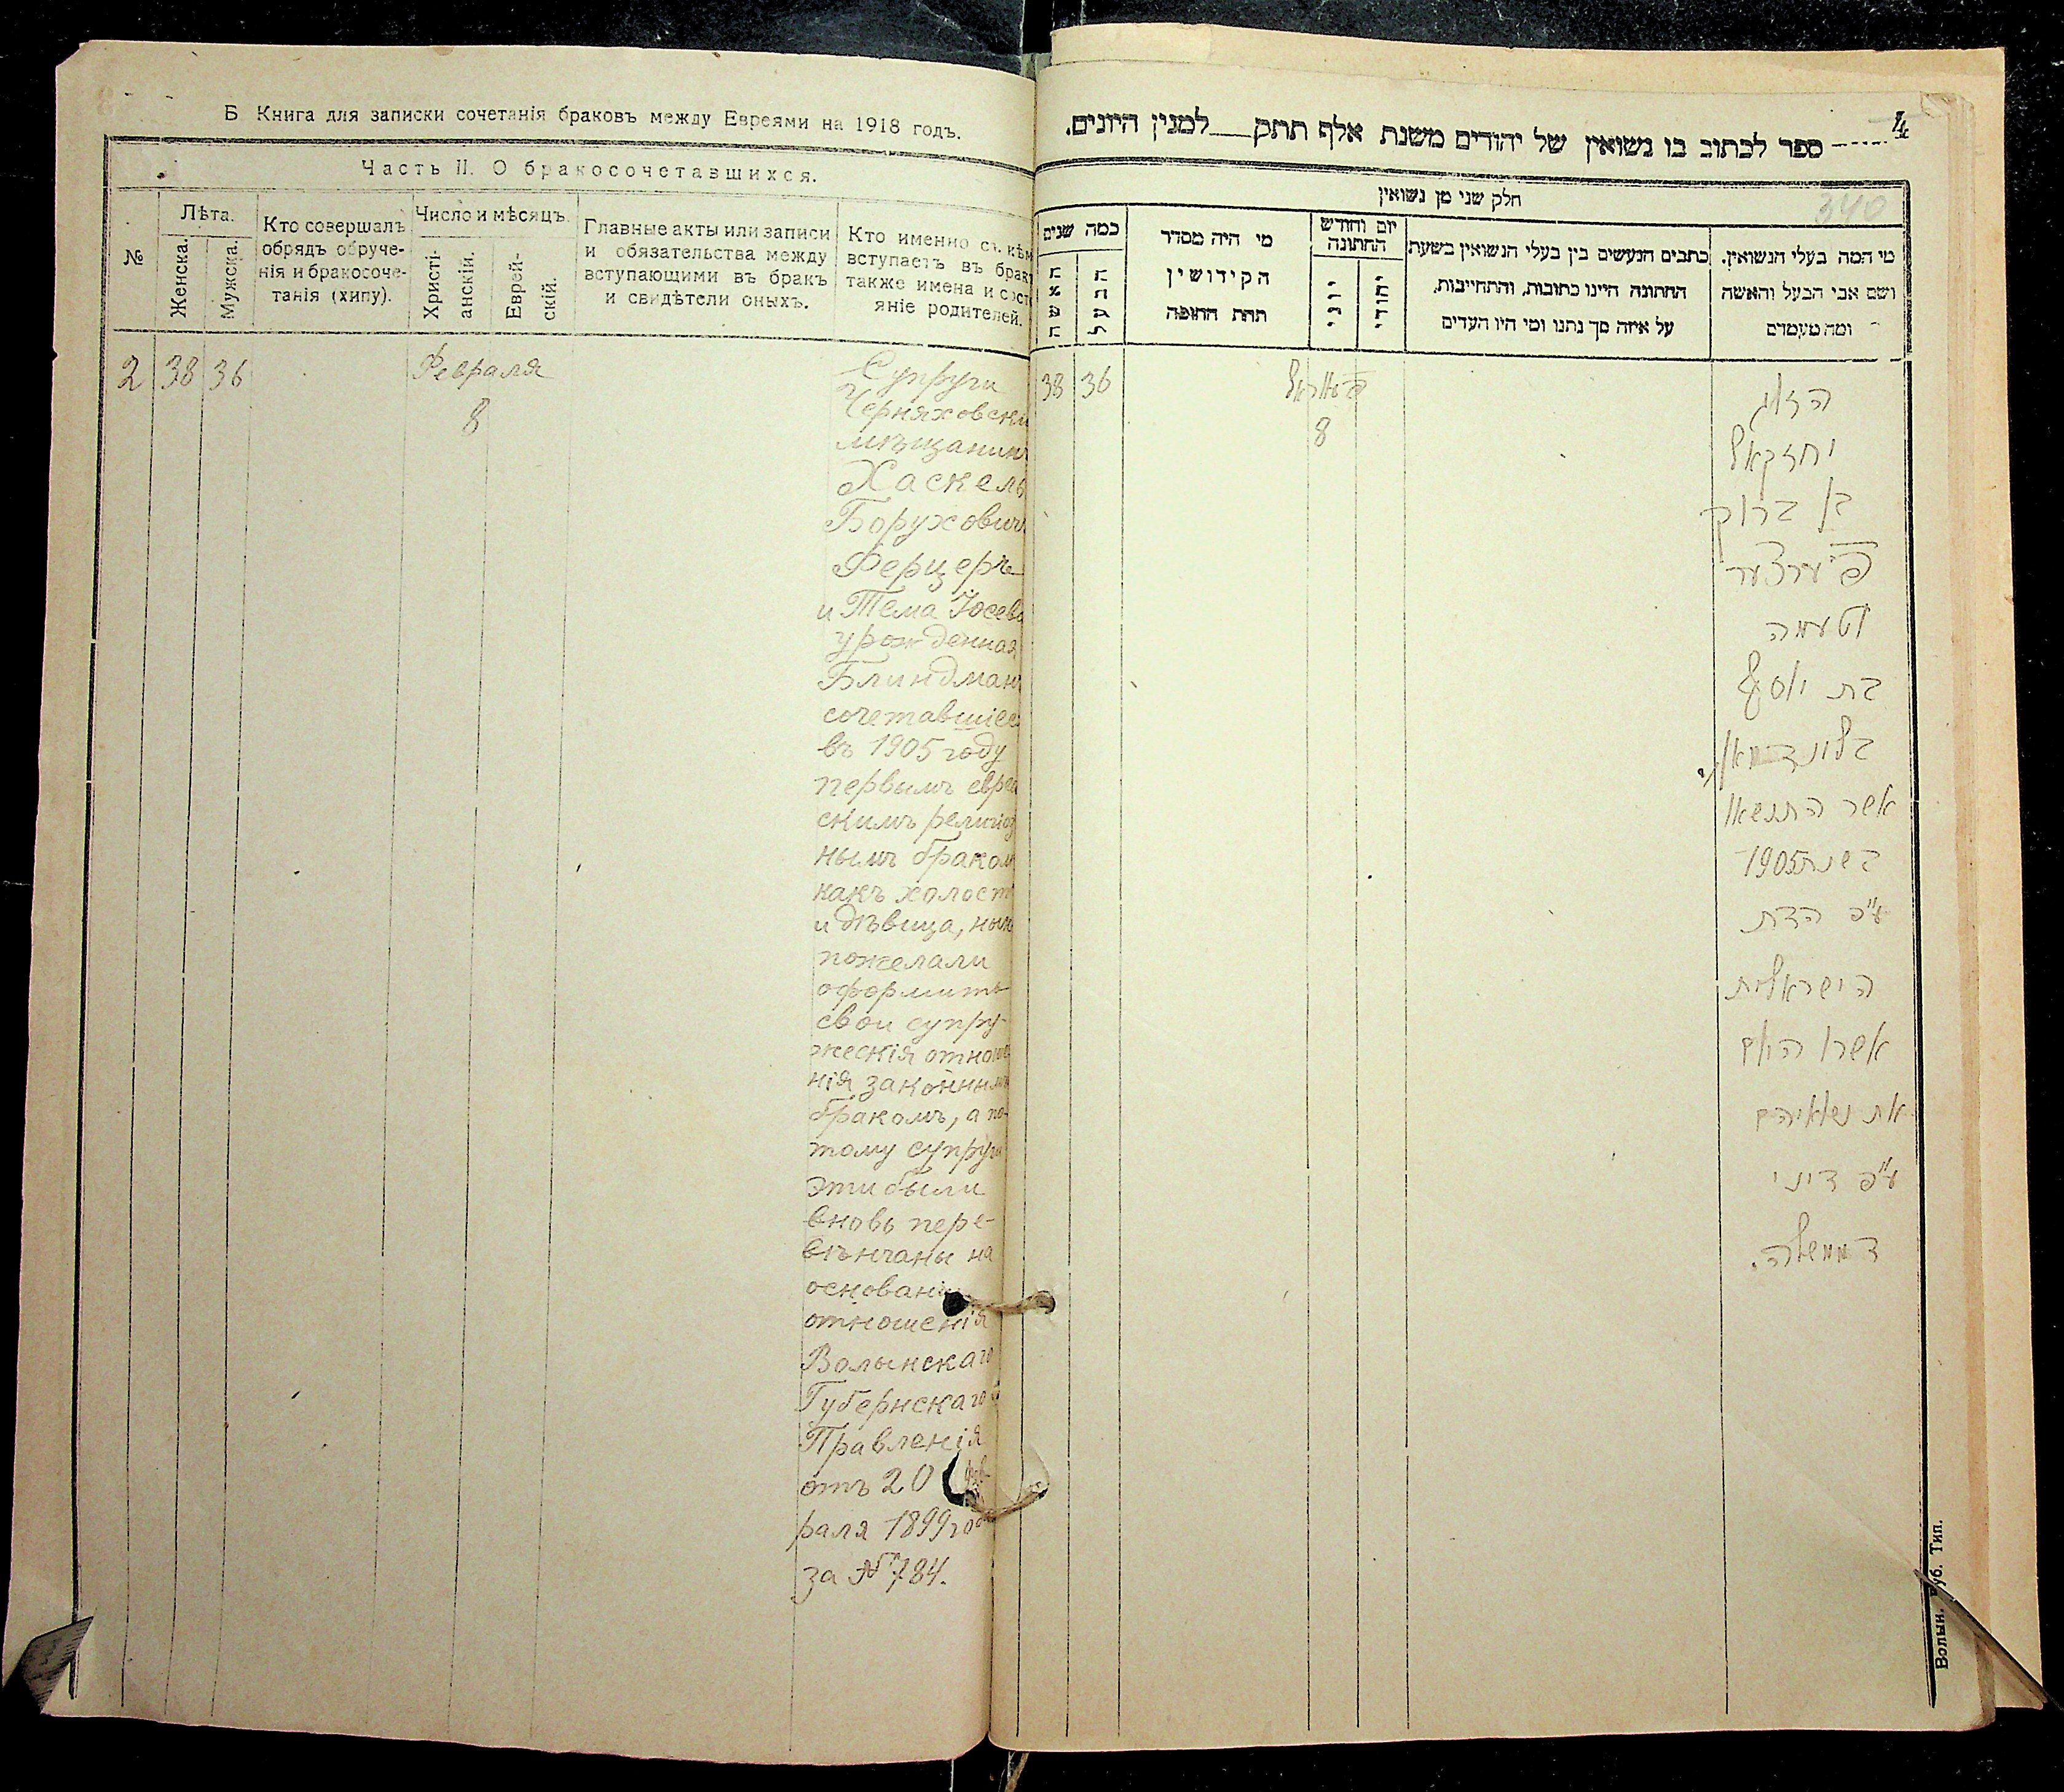 Б Книга для записки сочетанія браковъ между Евреями на 1918 годъ.
Часть II. О бракосочетавшихся.
№
Лѣта.
Женска.
Мужска.
Кто совершалъ
обрядъ обруче-
нія и бракосоче-
танія (хипу).
Число и мѣсяцъ.
Христі-
анскій.
Еврей-
скій.
Главные акты или записи
и обязательства между
вступающими въ бракъ
и свидѣтели оныхъ.
Кто именно съ кѣм
вступаетъ въ брак
также имена и сост
яніе родителей.
2 38 36
Февраля
8
Супруги
Черняховскі
мѣщанинъ
Хаскель
Борухович
Ферцеръ
и Тема Юсева
урожденная
Блиндман
сочетавшіес
въ 1905 году
первымъ евре
скимъ религіоз
нымъ браком
какъ холост
и дѣвица, нын
пожелали
оформить
свои супру-
жескія отноше
нія законным
бракомъ, а по-
тому супруги
эти были
вновь пере-
вѣнчаны на
основаніи
отношенія
Волынскаго
Губернскаго
Правленія
отъ 20 фев-
раля 1899 года
за № 784.
4
ספר לכתוב בו נשואין של יהודים משנת אלף תתק למנין היונים.
חלק שני מן נשואין
340
כמה שנים
האשה
הבעל
מי היה מסדר
הקידושין
תחת החופה
יום וחודש
החתונה
יוני
יהודי
כתבים הנעשים בין בעלי הנשואין בשעת
החתונה היינו כתובות, והתחייבות,
על איזה סך נתנו ומי היו העדים
מי המה בעלי הנשואין.
ושם אבי הבעל והאשה
ומה מעמדם
38 36
8
הזוג
יחזקאל
בן ברוך
פערצער
וטעמה
בת יוסף
בלינדמאן
אשר התנשאו
בשנת 1905
ע"פ הדת
הישראלית
אשרו היום
את נשואיהם
ע"פ דיני
הממשלה.
Волын. Губ. Тип.